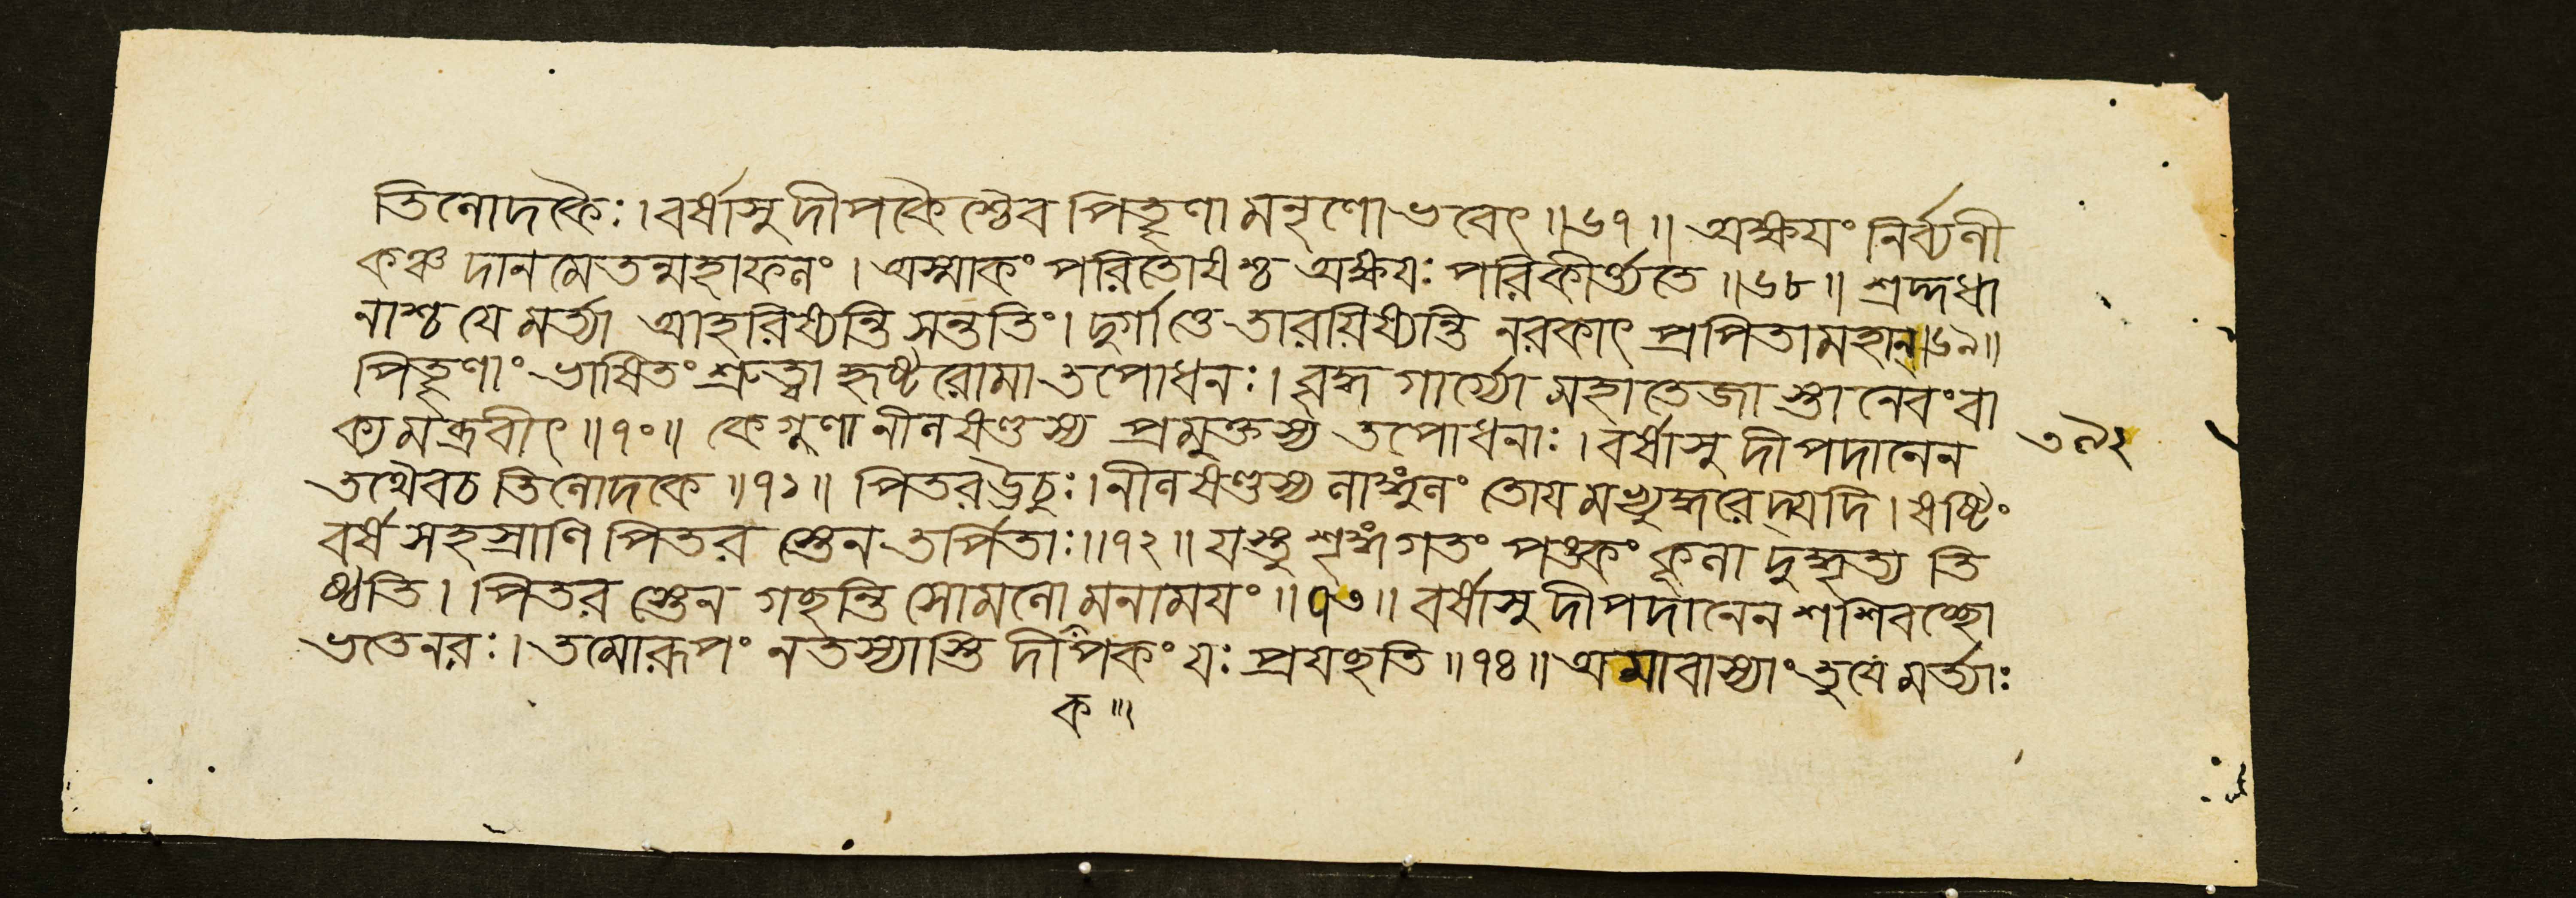 তিলোদকৈঃ। বর্ষাসু দীপকৈশ্চৈব পিতৄণামনৃণো ভবেৎ॥৬৭॥ অক্ষয়ং নির্ব্যলী
কঞ্চ দানমেতন্মহাফলং। অস্মাকং পরিতোষশ্চ অক্ষয়ঃ পরিকীর্ত্যতে॥৬৮॥ শ্রদ্দধা
নাশ্চ যে মর্ত্যা আহরিষ্যন্তি সন্ততিং। দুর্গাত্তে তারয়িষ্যন্তি নরকাৎ প্রপিতামহান্॥৬৯॥
পিতৄণাং ভাষিতং শ্রুত্বা হৃষ্টরোমা তপোধনঃ। বৃদ্ধগার্গ্যো মহাতেজাস্তানেবং বা
ক্যমব্রবীৎ॥৭০॥ কে গুণা নীলষণ্ডস্য প্রমুক্তস্য তপোধনাঃ। বর্ষাসু দীপদানেন
তথৈব চ তিলোদকে॥৭১॥ পিতর ঊচুঃ। নীলষণ্ডস্য লাঙ্গুলং তোয়মভ্যুদ্ধরেদ্যদি। ষষ্টিং
বর্ষসহস্রাণি পিতরস্তেন তর্পিতাঃ॥৭২॥ যস্তু শৃঙ্গগতং পঙ্কং কূলাদুদ্ধৃত্য তি
ষ্ঠতি। পিতরস্তেন গছন্তি সোমলোমনাময়ং॥৭৩॥ বর্ষাসু দীপদানেন শশিবচ্ছো
ভতে নরঃ। তমোরূপং ন তস্যাস্তি দীপকং যঃ প্রযছতি॥৭৪॥ অমাবাস্যাং তু যে মর্ত্যাঃ
ক॥৮
৩৯২